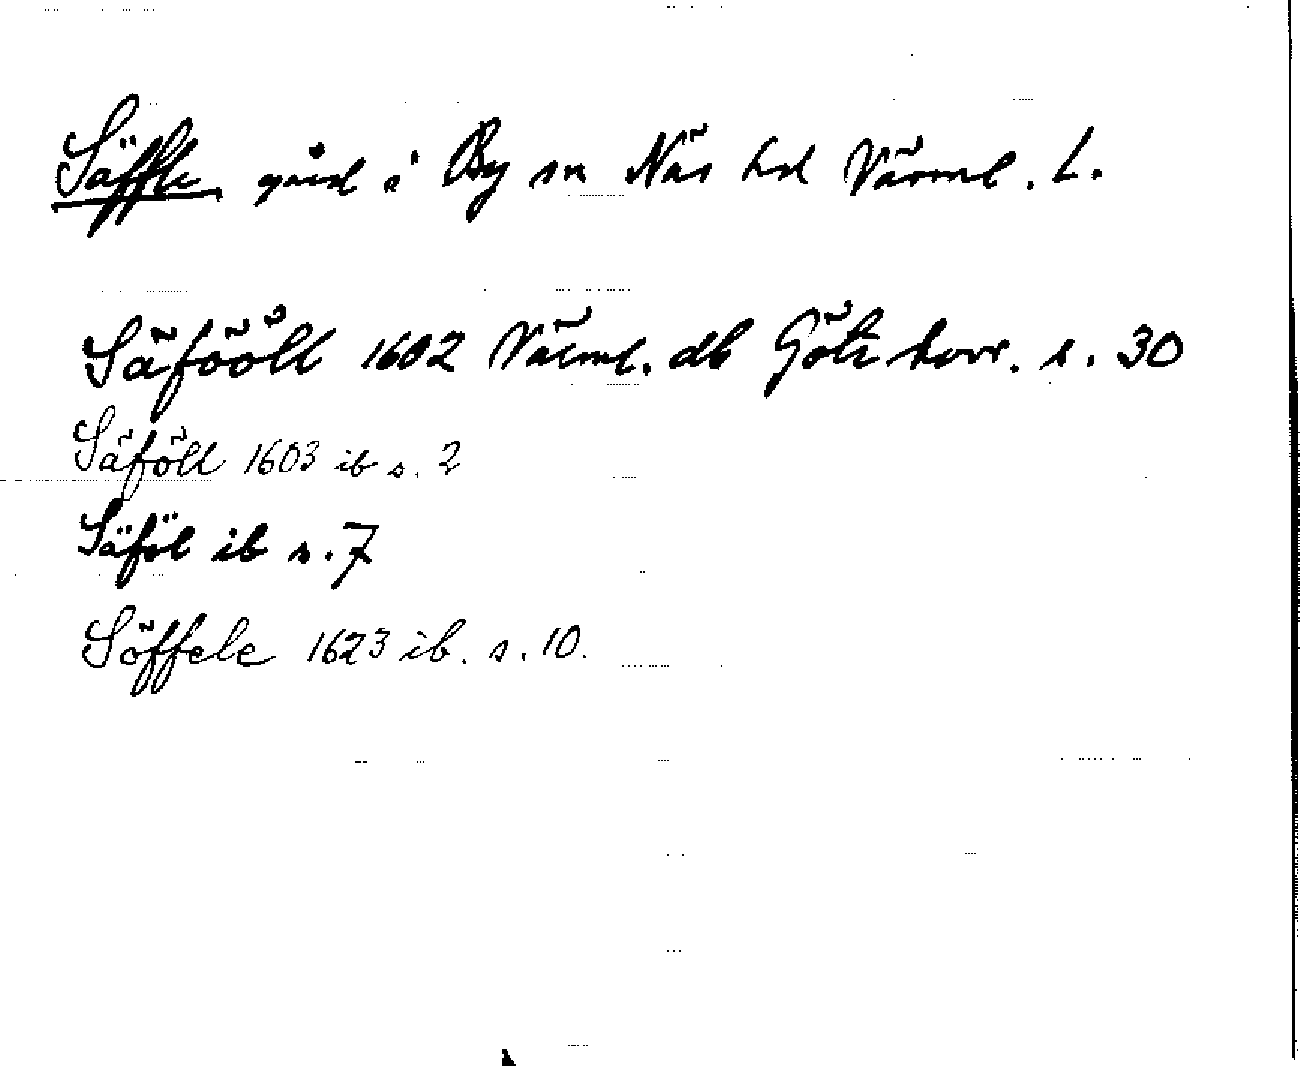 Säffle gård i By sn Näs hd Värml. L.
Säföåll 1602 Värml. db Göta hovr. s. 30
Säföll 1603 ib s. 2
Säföl ib s. 7
Söffele 1623 ib. s. 10.